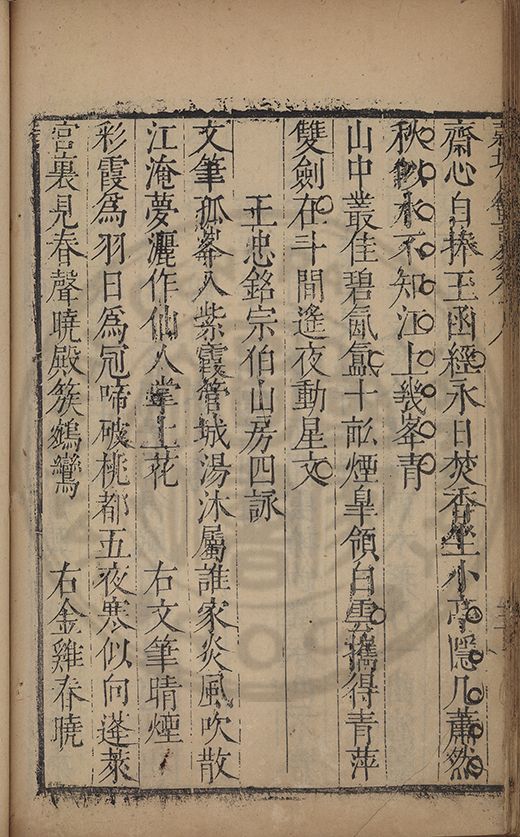 齋心自捧玉函經永日焚香坐小亭隱几蕭然
秋水不知江上幾峯青
山中叢佳碧氤氳十畝煙臯領白雲擕得青萍
雙劍在斗間遙夜動星文
王忠銘宗伯山房四詠
文筆孤峯入紫霞管城湯沐屬誰家炎風吹散
江淹夢灑作仙人掌上花　右文筆晴煙
彩霞為羽日為冠啼破桃都五夜寒似向蓬萊
宮裏見春聲曉殿簇鵷鸞　右金雞春曉